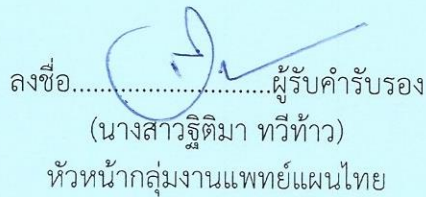 ลงชื่อ..............................ผู้รับคำรับรอง
(นางสาวฐิติมา ทวีท้าว)
หัวหน้ากลุ่มงานแพทย์แผนไทย